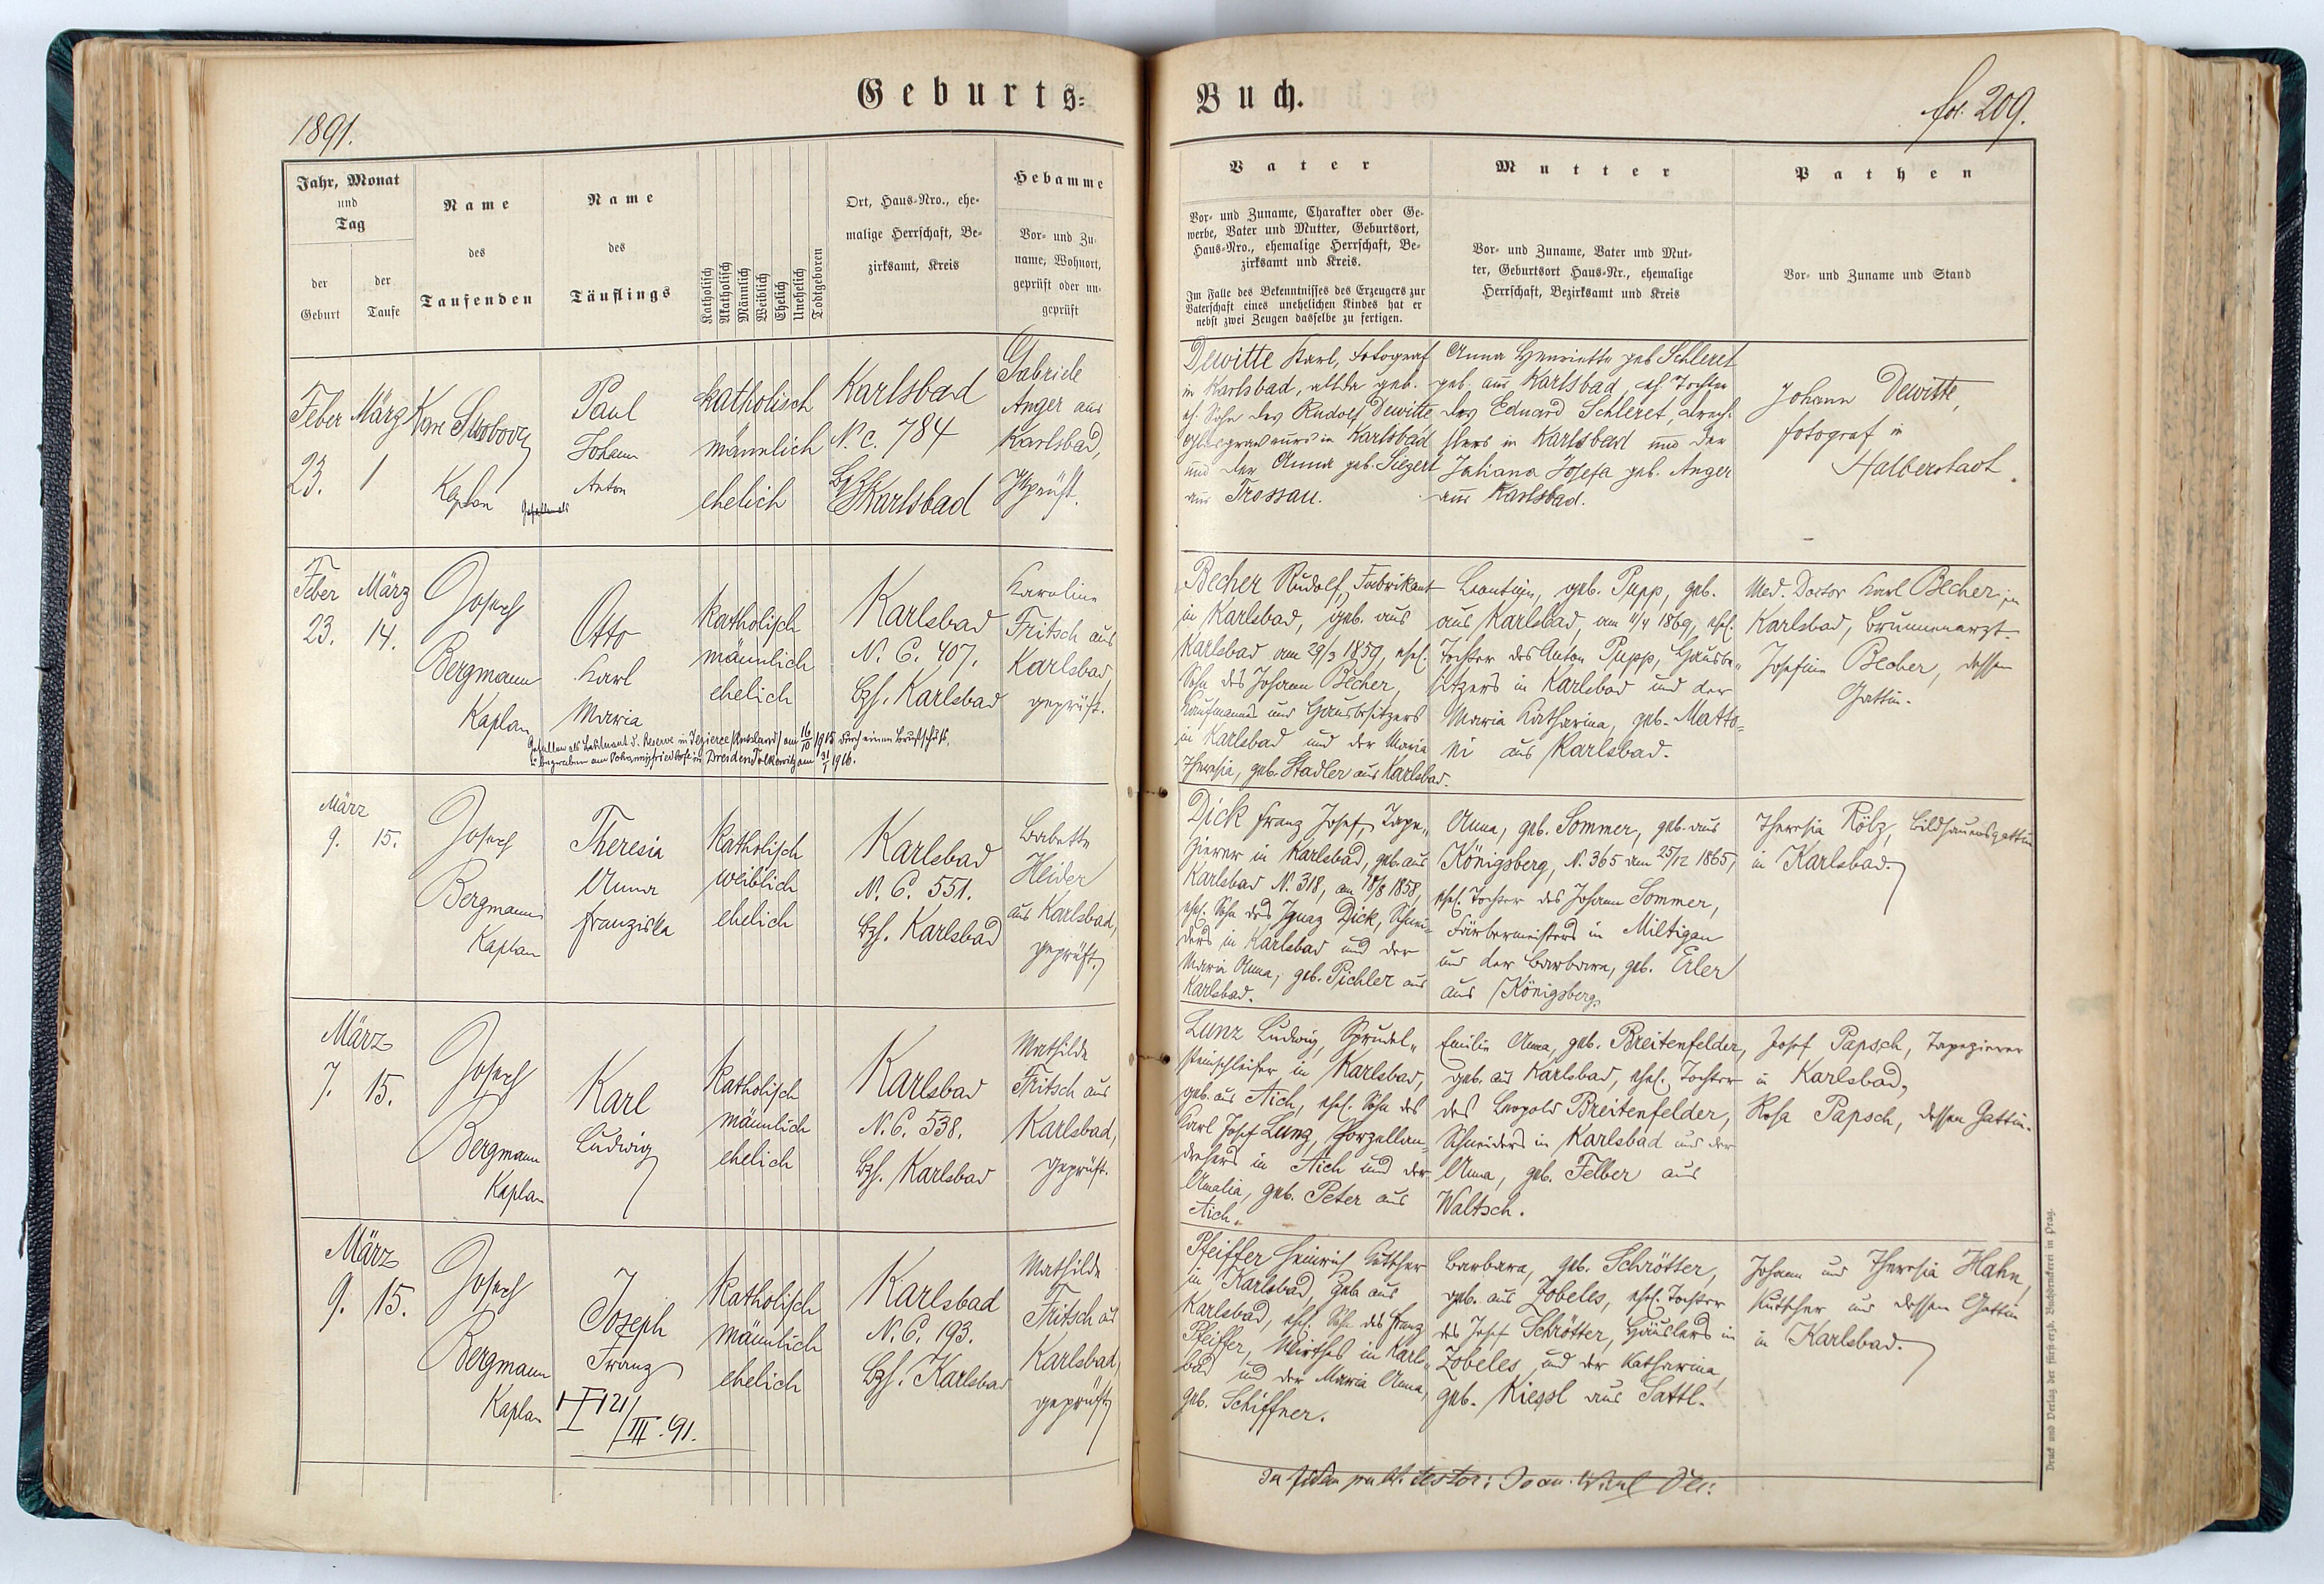 Geburts=
Buch.
1891.
fol. 209.
Jahr, Monat
und
Tag
der
Geburt
der
Taufe
Name
des
Taufenden
Name
des
Täuflings
Katholisch
Akatholisch
Männlich
Weiblich
Ehelich
Unehelich
Todtgeboren
Ort, Haus-Nro., ehe-
malige Herrschaft, Be-
zirksamt, Kreis
Hebamme
Vor- und Zu-
name, Wohnort,
geprüft oder un-
geprüft
Vater
Vor- und Zuname, Charakter oder Ge-
werbe, Vater und Mutter, Geburtsort,
Haus-Nro., ehemalige Herrschaft, Be-
zirksamt und Kreis.
Im Falle des Bekenntnisses des Erzeugers zur
Vaterschaft eines unehelichen Kindes hat er
nebst zwei Zeugen dasselbe zu fertigen.
Mutter
Vor- und Zuname, Vater und Mut-
ter, Geburtsort Haus-Nr., ehemalige
Herrschaft, Bezirksamt und Kreis
Pathen
Vor- und Zuname und Stand
Feber
23.
März
1
Kaplan
Paul
Johann
Anton
katholisch
männlich
ehelich
Karlsbad
N. C. 784
Karlsbad
Gabriele
Anger aus
Karlsbad,
geprüft.
Dewitte Karl, Fotograf
in Karlsbad, geb.
eh. Sohn des Rudolf Dewitte
in Karlsbad
und der Anna geb. Siegert
aus Trossau.
Anna Henriette geb. Schleret
geb. aus Karlsbad, eh. Tochter
des Eduard Schleret, Drechs-
lers in Karlsbad und der
Juliana Josefa geb. Anger
aus Karlsbad.
Johann Dewitte,
Fotograf in
Halberstadt.
Feber
23.
März
14.
Josef
Bergmann
Kaplan
Otto
Karl
Maria
katholisch
männlich
ehelich
Karlsbad
N. C. 407.
Bzh. Karlsbad
Karoline
Fritsch aus
Karlsbad,
geprüft.
Gefallen als Leutnant d. Reserve in Jezierce (Russland) am 16/10 1915 durch einen Brustschuß,
begraben am Johannisfriedhofe in Dresden Tolkewitz am 1916.
Becher Rudolf, Fabrikant
in Karlsbad, geb. aus
Karlsbad am 29/3 1859, ehel.
Sohn des Johann Becher,
Kaufmannes und Hausbesitzers
in Karlsbad und der Maria
Theresia, geb. Stadler aus Karlsbad.
Leontine, geb. Pupp, geb.
aus Karlsbad, am 11/4 1869, ehel.
Tochter des Anton Pupp, Hausbe-
sitzers in Karlsbad und der
Maria Katharina, geb. Matto-
ni aus Karlsbad.
Med. Doctor Karl Becher, in
Karlsbad, Brunnenarzt.
Josefine Becher, dessen
Gattin.
März
9.
15.
Josef
Bergmann
Kaplan
Theresia
Anna
Franziska
katholisch
weiblich
ehelich
Karlsbad
N. C. 551.
Bzh. Karlsbad
Babette
Heider
aus Karlsbad,
geprüft.
Dick Franz Josef, Tape-
zierer in Karlsbad, geb. aus
Karlsbad N. 318, am 18/8 1858,
ehel. Sohn des Ignaz Dick, Schnei-
ders in Karlsbad und der
Maria Anna, geb. Pichler aus
Karlsbad.
Anna, geb. Sommer, geb. aus
Königsberg, N. 365 am 25/12 1865,
ehel. Tochter des Johann Sommer,
Färbermeisters in Miltigau
und der Barbara, geb. Erler
aus Königsberg.
Theresia Rölz, Bildhauersgattin
in Karlsbad.
März
7.
15.
Josef
Bergmann
Kaplan
Karl
Ludwig
katholisch
männlich
ehelich
Karlsbad
N. C. 538.
Bzh. Karlsbad
Mathilde
Fritsch aus
Karlsbad,
geprüft.
Lunz Ludwig, Sprudel-
steinschleifer in Karlsbad,
geb. aus Aich, ehel. Sohn des
Karl Josef Lunz, Porzellan-
drehers in Aich und der
Amalia, geb. Peter aus
Aich.
Emilie Anna, geb. Breitenfelder,
geb. aus Karlsbad, ehel. Tochter
des Leopold Breitenfelder,
Schneiders in Karlsbad und der
Anna, geb. Felber aus
Waltsch.
Josef Papsch, Tapezierer
in Karlsbad,
Rosa Papsch, dessen Gattin.
März
9.
15.
Josef
Bergmann
Kaplan
Joseph
Franz
† 21/III. 91.
katholisch
männlich
ehelich
Karlsbad
N. C. 193.
Bzh. Karlsbad
Mathilde
Fritsch aus
Karlsbad,
geprüft
Pfeiffer Heinrich Kutscher
in Karlsbad, geb. aus
Karlsbad, ehel. Sohn des Franz
Pfeiffer, Wirthes in Karls-
bad und der Maria Anna,
geb. Schiffner.
Barbara, geb. Schrötter,
geb. aus Zobeles, ehel. Tochter
des Josef Schrötter, Häuslers in
Zobeles und der Katharina,
geb. Kiessl aus Sattl.
Johann und Theresia Hahn,
Kutscher und dessen Gattin
in Karlsbad.
testor:
Druck und Verlag der fürst-erzb. Buchdruckerei in Prag.